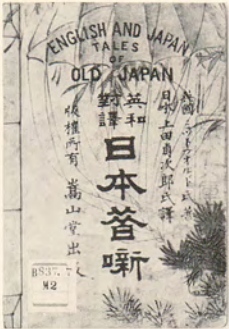 ENGLISH AND JAPAN
TALES
OF
OLD JAPAN
英和
對譯
日本昔噺
上田貞次郎氏譯
版權所有
嵩山堂出版
B837.7
M2